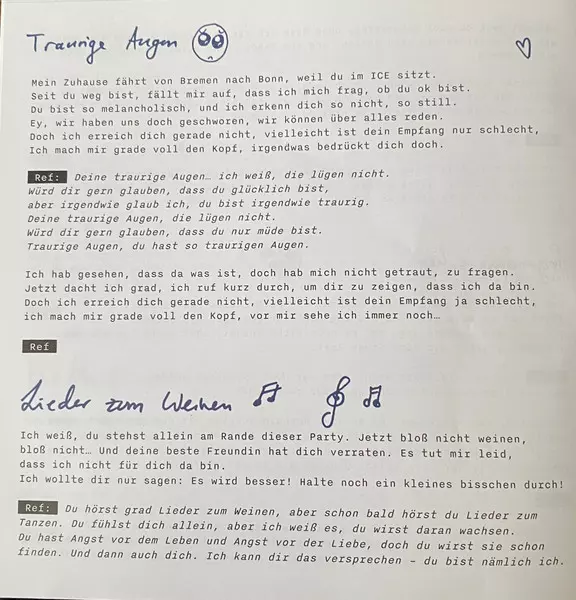 Traurige Augen
Mein Zuhause fährt von Bremen nach Bonn, weil du im ICE sitzt.
Seit du weg bist, fällt mir auf, dass ich mich frag, ob du ok bist.
Du bist so melancholisch, und ich erkenn dich so nicht, so still.
Ey, wir haben uns doch geschworen, wir können über alles reden.
Doch ich erreich dich gerade nicht, vielleicht ist dein Empfang nur schlecht,
Ich mach mir grade voll den Kopf, irgendwas bedrückt dich doch.
Ref: Deine traurige Augen… ich weiß, die lügen nicht.
Würd dir gern glauben, dass du glücklich bist,
aber irgendwie glaub ich, du bist irgendwie traurig.
Deine traurige Augen, die lügen nicht.
Würd dir gern glauben, dass du nur müde bist.
Traurige Augen, du hast so traurigen Augen.
Ich hab gesehen, dass da was ist, doch hab mich nicht getraut, zu fragen.
Jetzt dacht ich grad, ich ruf kurz durch, um dir zu zeigen, dass ich da bin.
Doch ich erreich dich gerade nicht, vielleicht ist dein Empfang ja schlecht,
ich mach mir grade voll den Kopf, vor mir sehe ich immer noch…
Ref
Lieder zum Weinen
Ich weiß, du stehst allein am Rande dieser Party. Jetzt bloß nicht weinen,
bloß nicht… Und deine beste Freundin hat dich verraten. Es tut mir leid,
dass ich nicht für dich da bin.
Ich wollte dir nur sagen: Es wird besser! Halte noch ein kleines bisschen durch!
Ref: Du hörst grad Lieder zum Weinen, aber schon bald hörst du Lieder zum
Tanzen. Du fühlst dich allein, aber ich weiß es, du wirst daran wachsen.
Du hast Angst vor dem Leben und Angst vor der Liebe, doch du wirst sie schon
finden. Und dann auch dich. Ich kann dir das versprechen – du bist nämlich ich.